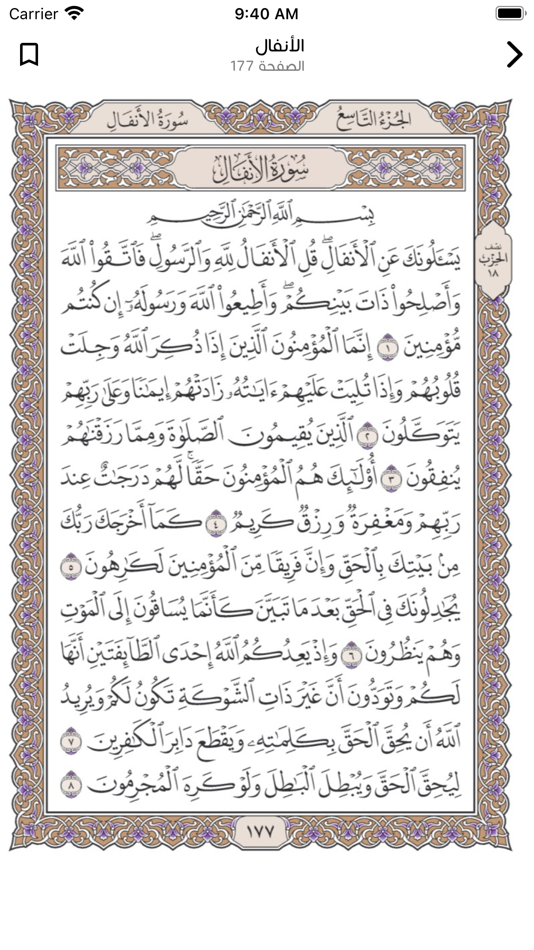 Carrier 9:40 AM
الأنفال
الصفحة 177
الجُزْءُ التَّاسِعُ
سُورَةُ الأَنفَالِ
سُورَةُ الأَنفَالِ
بِسْمِ اللَّهِ الرَّحْمَٰنِ الرَّحِيمِ
يَسْـَٔلُونَكَ عَنِ ٱلْأَنفَالِۖ قُلِ ٱلْأَنفَالُ لِلَّهِ وَٱلرَّسُولِۖ فَٱتَّقُوا۟ ٱللَّهَ
وَأَصْلِحُوا۟ ذَاتَ بَيْنِكُمْۖ وَأَطِيعُوا۟ ٱللَّهَ وَرَسُولَهُۥٓ إِن كُنتُم
مُّؤْمِنِينَ ١ إِنَّمَا ٱلْمُؤْمِنُونَ ٱلَّذِينَ إِذَا ذُكِرَ ٱللَّهُ وَجِلَتْ
قُلُوبُهُمْ وَإِذَا تُلِيَتْ عَلَيْهِمْ ءَايَٰتُهُۥ زَادَتْهُمْ إِيمَٰنًا وَعَلَىٰ رَبِّهِمْ
يَتَوَكَّلُونَ ٢ ٱلَّذِينَ يُقِيمُونَ ٱلصَّلَوٰةَ وَمِمَّا رَزَقْنَٰهُمْ
يُنفِقُونَ ٣ أُو۟لَٰٓئِكَ هُمُ ٱلْمُؤْمِنُونَ حَقًّاۚ لَّهُمْ دَرَجَٰتٌ عِندَ
رَبِّهِمْ وَمَغْفِرَةٌ وَرِزْقٌ كَرِيمٌ ٤ كَمَآ أَخْرَجَكَ رَبُّكَ
مِنۢ بَيْتِكَ بِٱلْحَقِّ وَإِنَّ فَرِيقًا مِّنَ ٱلْمُؤْمِنِينَ لَكَٰرِهُونَ ٥
يُجَٰدِلُونَكَ فِى ٱلْحَقِّ بَعْدَ مَا تَبَيَّنَ كَأَنَّمَا يُسَاقُونَ إِلَى ٱلْمَوْتِ
وَهُمْ يَنظُرُونَ ٦ وَإِذْ يَعِدُكُمُ ٱللَّهُ إِحْدَى ٱلطَّآئِفَتَيْنِ أَنَّهَا
لَكُمْ وَتَوَدُّونَ أَنَّ غَيْرَ ذَاتِ ٱلشَّوْكَةِ تَكُونُ لَكُمْ وَيُرِيدُ
ٱللَّهُ أَن يُحِقَّ ٱلْحَقَّ بِكَلِمَٰتِهِۦ وَيَقْطَعَ دَابِرَ ٱلْكَٰفِرِينَ ٧
لِيُحِقَّ ٱلْحَقَّ وَيُبْطِلَ ٱلْبَٰطِلَ وَلَوْ كَرِهَ ٱلْمُجْرِمُونَ ٨
نصف
الحزب
١٨
١٧٧